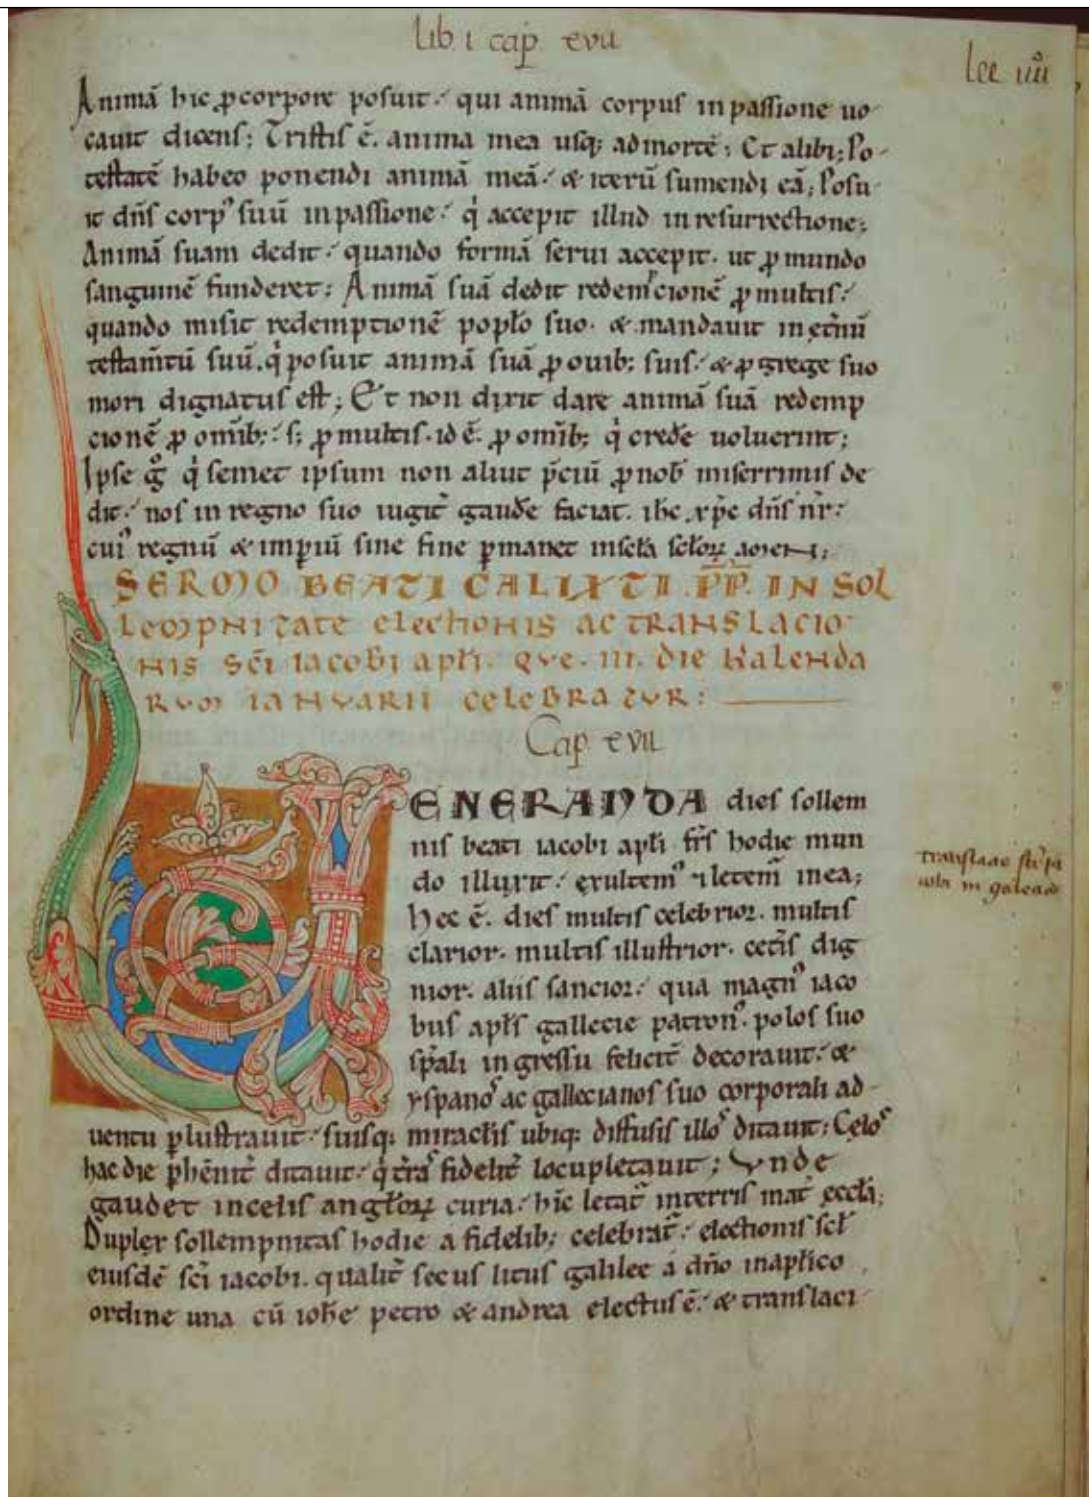 lib. i cap̄ xvii
lec iiii
Animā hic ꝓ corpore posuit: qui animā corpus in passione uo
cauit dicens; Tristis ē. anima mea usq; ad mortē; Et alibi; Po-
testatē habeo ponendi animā meā: & iterū sumendi eā; Posu
it dn̄s corpꝰ suū in passione: q̇ accepit illud in resurrectione;
Animā suam dedit: quando formā serui accepit. ut ꝓ mundo
sanguinē funderet; Animā suā dedit redemcionē ꝓ multis:
quando misit redemptionē popl̄o suo. & mandauit in et̄nū
testam̄tū suū. q̇ posuit animā suā ꝓ ouib; suis: & ꝓ grege suo
mori dignatus est; Et non dixit dare animā suā redemp
cionē ꝓ omīb;: s; ꝓ multis. id ē. ꝓ omīb; q̇ crede᷑ uoluerint;
Ipse g̊ q̇ semet ipsum non aliut p̄ciū ꝓ nob̄ miserrimis de
dit: nos in regno suo iugit᷑ gaude᷑ faciat. ih̄c xp̄c dn̄s nr̄:
cuiꝰ regnū & imp̄iū sine fine ꝑmanet in sc̄la sc̄loꝝ amen;
SERMO BEATI CALIXTI .P̄P̄. IN SOL
LEMPNITATE ELECTIONIS AC TRANSLACIO
NIS SC̄I IACOBI APL̄I. QVE .III. DIE KALENDA
RVM IANVARII CELEBRATVR:
Cap̄ xvii
VENERANDA dies sollem
nis beati iacobi apl̄i fr̄s hodie mun
do illuxit: exultemꝰ ⁊ letem᷑ in ea;
Hec ē. dies multis celebrior. multis
clarior. multis illustrior. cet᷑is dig
nior. aliis sancior: qua magnꝰ iaco
bus apl̄s gallecie patronꝰ. polos suo
sp̄ali ingressu felicit᷑ decorauit: &
yspanoˢ ac gallecianos suo corporali ad-
uentu ꝑlustrauit: suisq; miracl̄is ubiq; diffusis illoˢ ditauit; Celoˢ
hac die ꝑhēnit᷑ ditauit: q̇ t᷑raˢ fidelit᷑ locupletauit; Vnde
gaudet in celis angl̄oꝝ curia: hīc letat᷑ in terris mat᷑ eccl̄a;
Duplex sollempnitas hodie a fidelib; celebrat᷑: electionis scl̄
eiusdē sc̄i iacobi. qualit᷑ secus litus galilee a dn̄o in apl̄ico
ordine una cū ioh̄e petro & andrea electus ē: & translaci
translatio
in